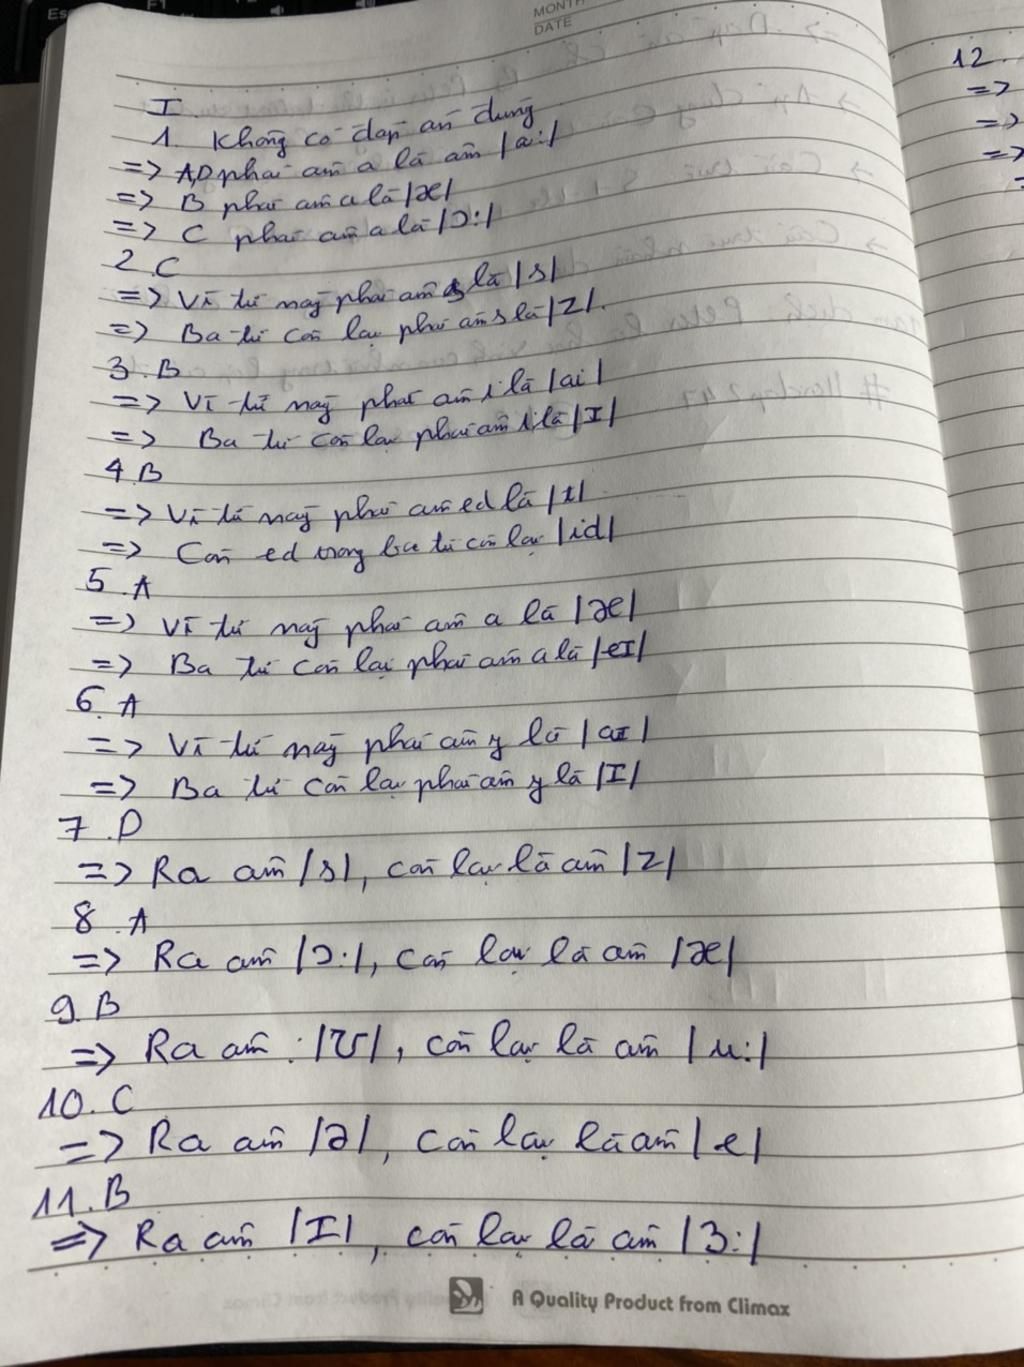 Esc
F1
MONTH
DATE
I.
1. Không có đáp án đúng
=> A,D phát âm a là âm |a:|
=> B phát âm a là |æ|
=> C phát âm a là |ɔ:|
2.C
=> Vì từ này phát âm s là |s|
=> Ba từ còn lại phát âm s là |z|.
3.B
=> Vì từ này phát âm i là |ai|
=> Ba từ còn lại phát âm i là |I|
4.B
=> Vì từ này phát âm ed là |t|
=> Còn ed trong ba từ còn lại |id|
5.A
=> Vì từ này phát âm a là |æ|
=> Ba từ còn lại phát âm a là |eI|
6.A
=> Vì từ này phát âm y là |aI|
=> Ba từ còn lại phát âm y là |I|
7.D
=> Ra âm |s|, còn lại là âm |z|
8.A
=> Ra âm |ɔ:|, còn lại là âm |æ|
9.B
=> Ra âm : |ʊ|, còn lại là âm |u:|
10.C
=> Ra âm |ə|, còn lại là âm |e|
11.B
=> Ra âm |I|, còn lại là âm |3:|
A Quality Product from Climax
12.
=>
=>
=>